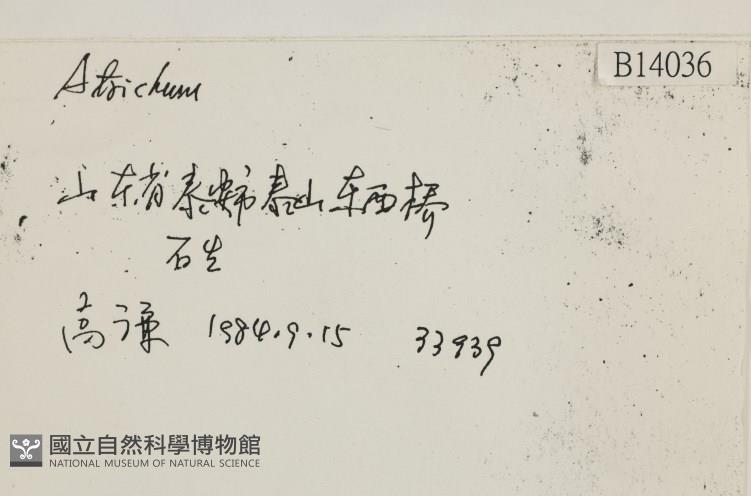 B14036
Atrichum
山东省泰安市泰山东西桥
石生
高谦 1984.9.15 33939
國立自然科學博物館
NATIONAL MUSEUM OF NATURAL SCIENCE